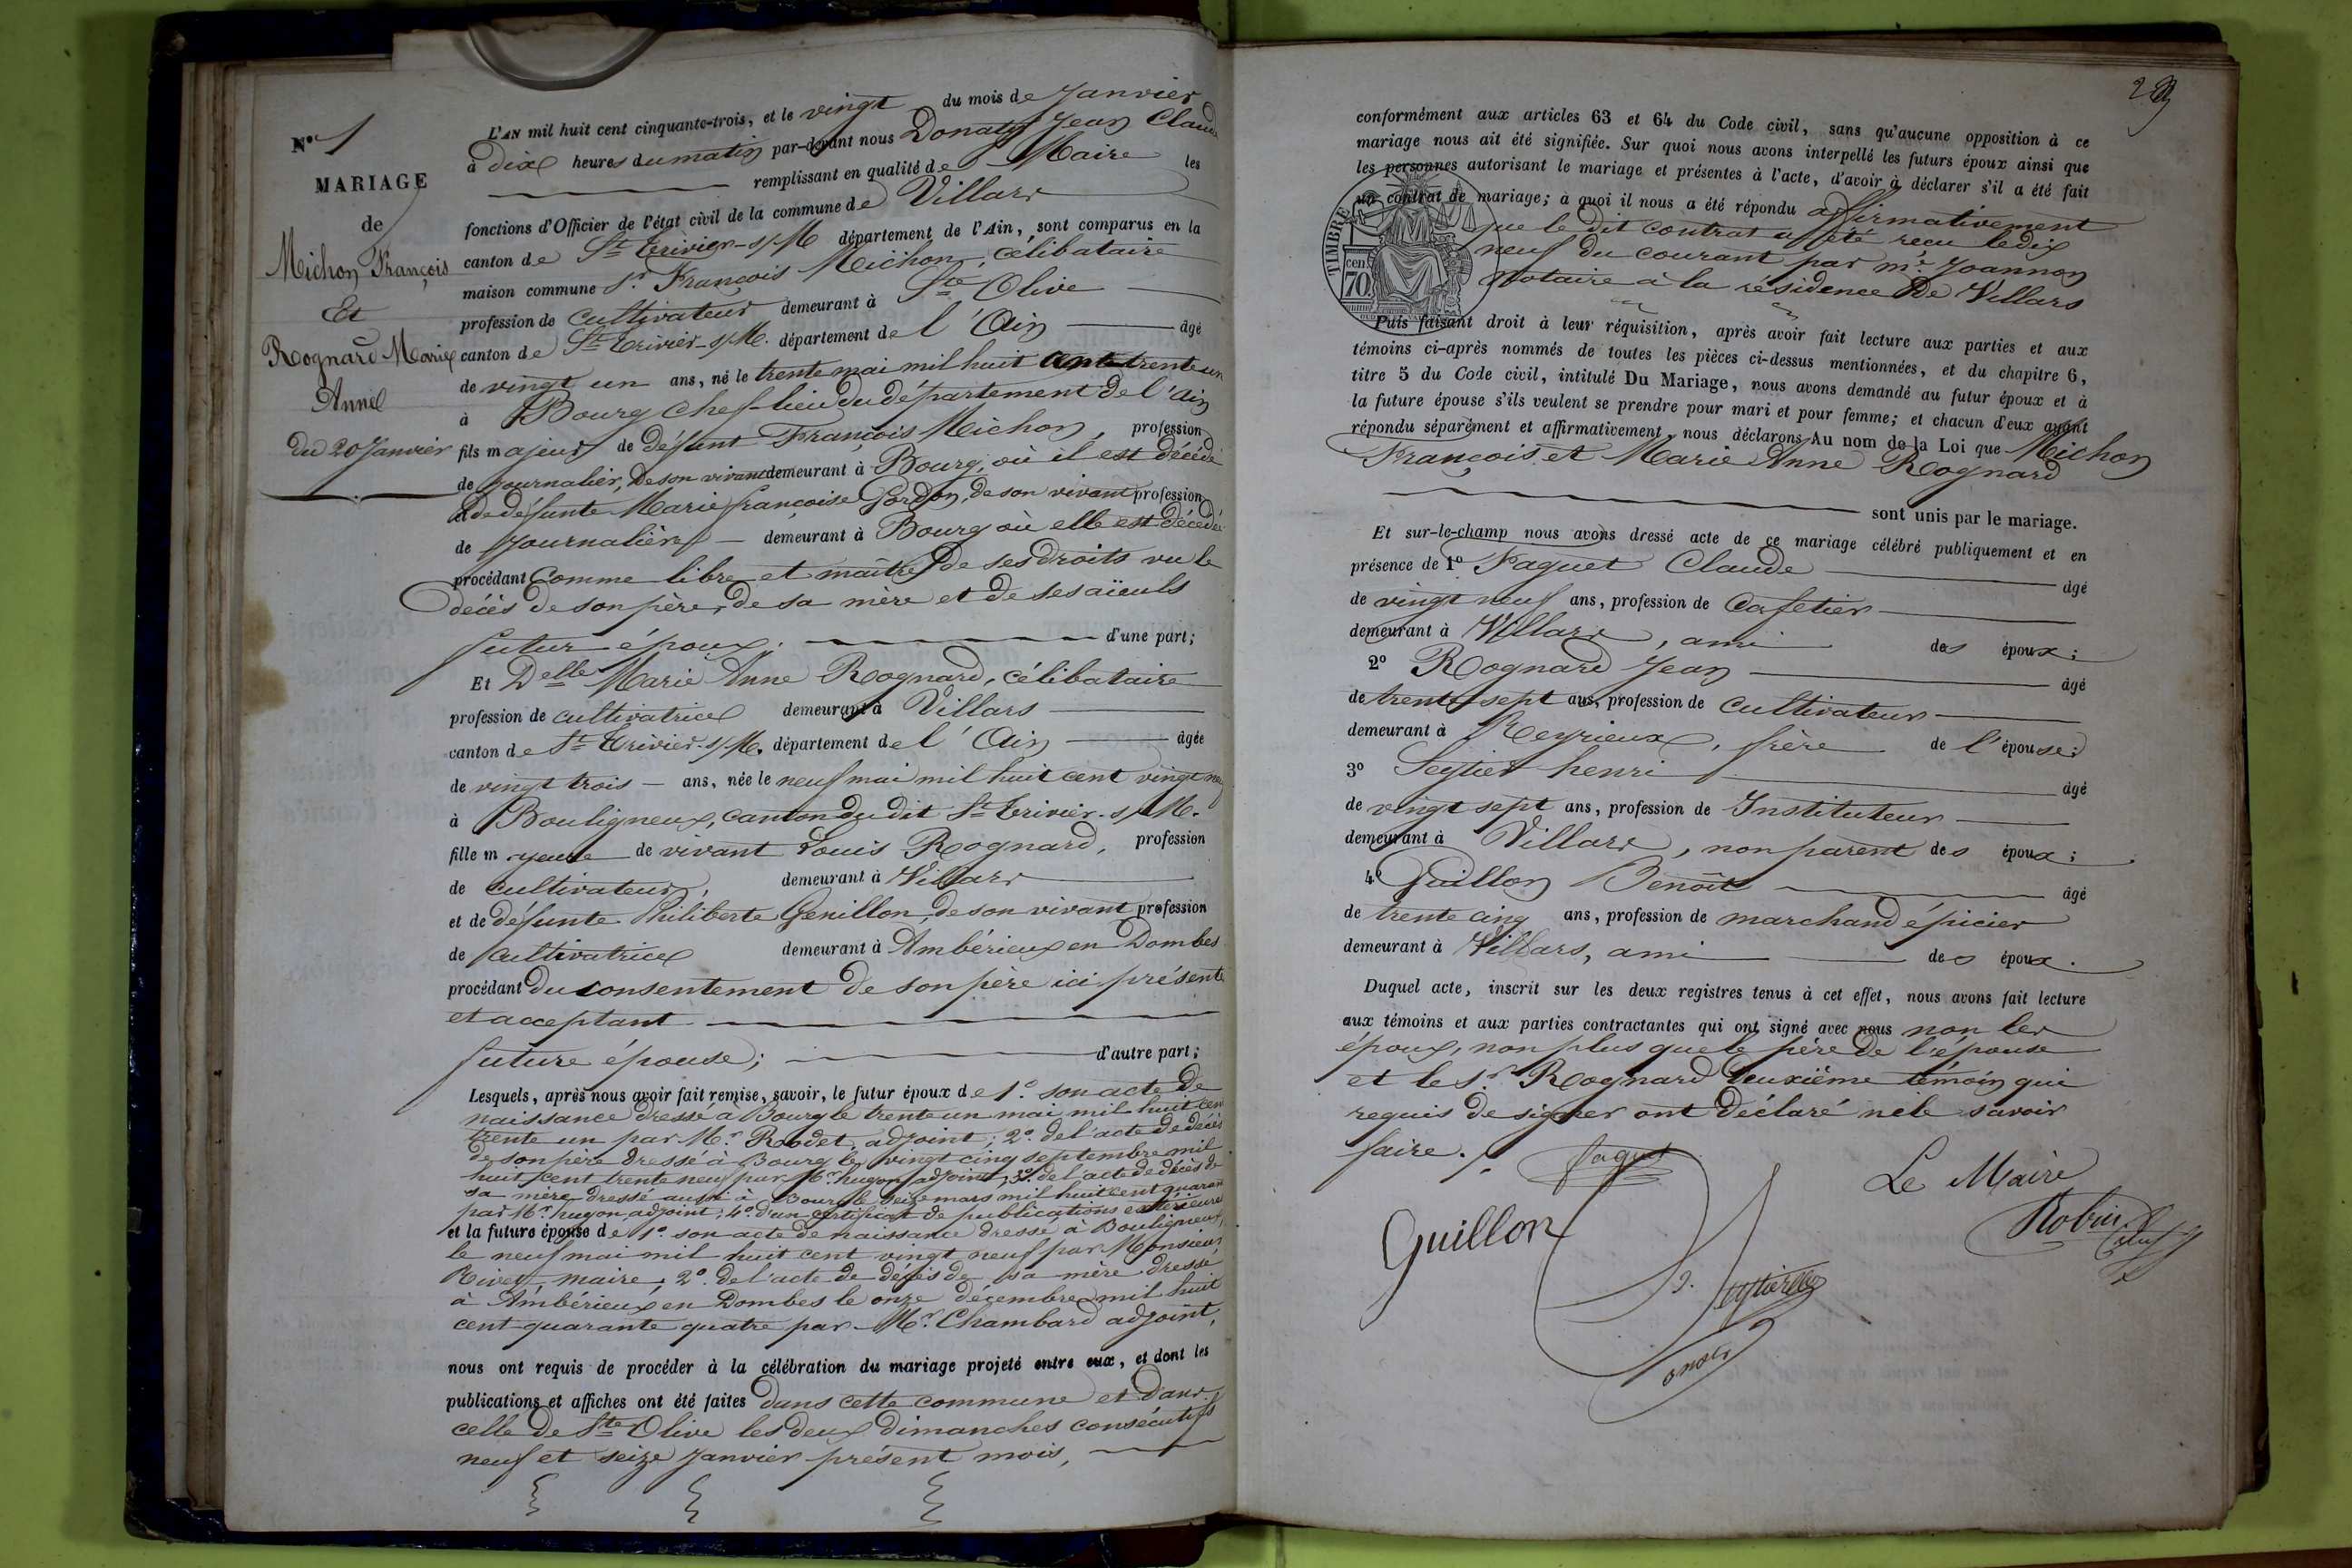 N° 1
MARIAGE
de
Michon François
Et
Rognard Marie
Anne
du 20 Janvier
L'AN mil huit cent cinquante-trois, et le vingt du mois de Janvier
à dix heures du matin par-devant nous Donat Jean Claude
remplissant en qualité de Maire les
fonctions d'Officier de l'état civil de la commune de Villars
canton de St Trivier-s/M département de l'Ain, sont comparus en la
maison commune Sr. François Michon, célibataire
profession de cultivateur demeurant à Ste Olive
canton de St Trivier-s/M. département de l'Ain âgé
de vingt un ans, né le trente mai mil huit cent trente un
à Bourg chef-lieu du département de l'Ain
fils majeur de défunt François Michon, profession
de journalier, de son vivant demeurant à Bourg, où il est décédé
et de défunte Marie françoise Gordon, de son vivant profession
de journalière demeurant à Bourg où elle est décédée
procédant comme libre et maître de ses droits vu le
décès de son père, de sa mère et de ses aïeuls
futur époux. d'une part;
Et Delle Marie Anne Rognard, célibataire
profession de cultivatrice demeurant à Villars
canton de St Trivier-s/M. département de l'Ain âgée
de vingt trois ans, née le neuf mai mil huit cent vingt neuf
à Bouligneux, canton du dit St Trivier-s/M.
fille majeure de vivant Louis Rognard, profession
de cultivateur, demeurant à Villars
et de défunte Philiberte Genillon, de son vivant profession
de cultivatrice demeurant à Ambérieux en Dombes
procédant du consentement de son père ici présente
et acceptant
future épouse; d'autre part;
Lesquels, après nous avoir fait remise, savoir, le futur époux de 1° son acte de
naissance dressé à Bourg le trente un mai mil huit cent
trente un par Mr. Rodet, adjoint; 2° de l'acte de décès
de son père dressé à Bourg le vingt cinq septembre mil
huit cent trente neuf par Mr. hugon, adjoint, 3° de l'acte de décès de
sa mère dressé aussi à Bourg le seize mars mil huit cent quarante
par Mr. hugon, adjoint; 4° d'un certificat de publications extérieures
et la future épouse de 1° son acte de naissance dressé à Bouligneux,
le neuf mai mil huit cent vingt neuf par Monsieur
maire; 2° de l'acte de décès de sa mère dressé
à Ambérieux en Dombes le onze décembre mil huit
cent quarante quatre par Mr. Chambard adjoint,
nous ont requis de procéder à la célébration du mariage projeté entre eux, et dont les
publications et affiches ont été faites dans cette commune et dans
celle de Ste Olive les deux dimanches consécutifs
neuf et seize Janvier présent mois,
conformément aux articles 63 et 64 du Code civil, sans qu'aucune opposition à ce
mariage nous ait été signifiée. Sur quoi nous avons interpellé les futurs époux ainsi que
les personnes autorisant le mariage et présentes à l'acte, d'avoir à déclarer s'il a été fait
un contrat de mariage; à quoi il nous a été répondu affirmativement
que le dit contrat a été reçu le dix
neuf du courant par me. Joannon
notaire à la résidence de Villars
TIMBRE
70
cen.
Puis faisant droit à leur réquisition, après avoir fait lecture aux parties et aux
témoins ci-après nommés de toutes les pièces ci-dessus mentionnées, et du chapitre 6,
titre 5 du Code civil, intitulé Du Mariage, nous avons demandé au futur époux et à
la future épouse s'ils veulent se prendre pour mari et pour femme; et chacun d'eux ayant
répondu séparément et affirmativement, nous déclarons Au nom de la Loi que Michon
François et Marie Anne Rognard
sont unis par le mariage.
Et sur-le-champ nous avons dressé acte de ce mariage célébré publiquement et en
présence de 1° Faguet Claude âgé
de vingt neuf ans, profession de Cafetier
demeurant à Villars, ami des époux;
2° Rognard Jean âgé
de trente sept ans, profession de cultivateur
demeurant à Reyrieux, frère de l'épouse;
3° Seytier henri âgé
de vingt sept ans, profession de Instituteur
demeurant à Villars, non parent des époux;
4° Guillon Benoît âgé
de trente cinq ans, profession de marchand épicier
demeurant à Villars, ami des époux.
Duquel acte, inscrit sur les deux registres tenus à cet effet, nous avons fait lecture
aux témoins et aux parties contractantes qui ont signé avec nous non les
époux, non plus que le père de l'épouse
et le sr. Rognard deuxième témoin qui
requis de signer ont déclaré ne le savoir
faire.
faguet
Le Maire
Guillon